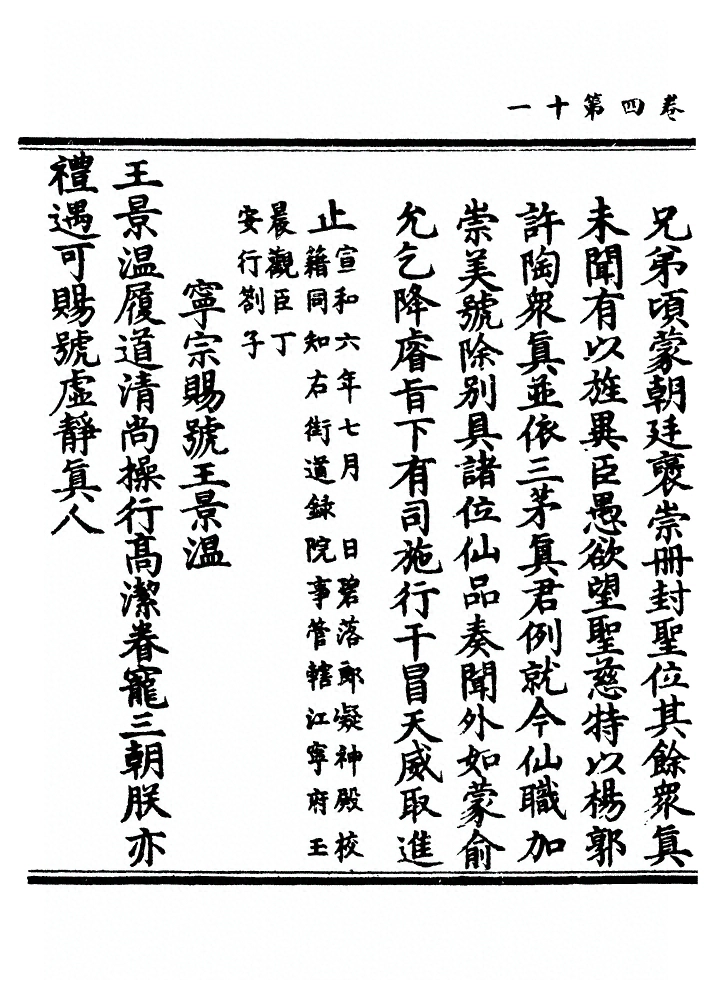 卷四第十一
兄弟頃蒙朝廷褒崇冊封聖位其餘衆眞
未聞有以旌異臣愚欲望聖慈特以楊郭
許陶衆眞並依三茅眞君例就今仙職加
崇美號除别具諸位仙品奏聞外如蒙俞
允乞降睿旨下有司施行干冒天威取進
止宣和六年七月 日碧落郎凝神殿校
籍同知右街道録院事管轄江寧府王
晨觀臣丁
安行劄子
寧宗賜號王景温
王景温履道清尚操行高潔眷寵三朝朕亦
禮遇可賜號虚靜眞人